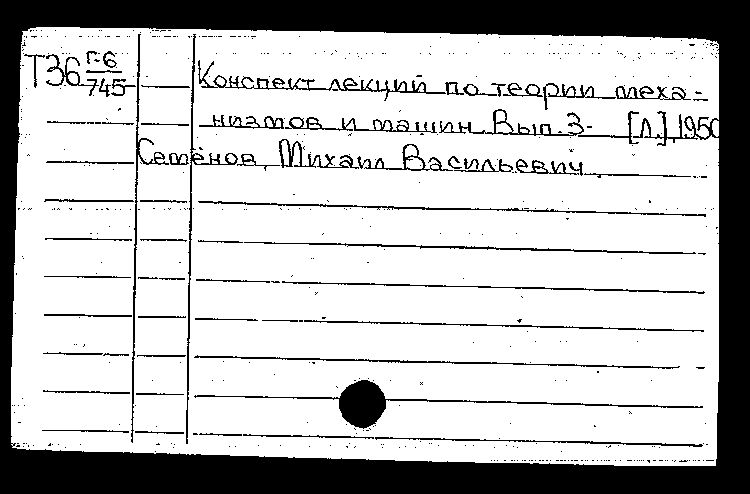 Т36 Г-6/745 Конспект лекций по теории меха-
низмов и машин. Вып. 3- [Л.], 1950
Семёнов, Михаил Васильевич.